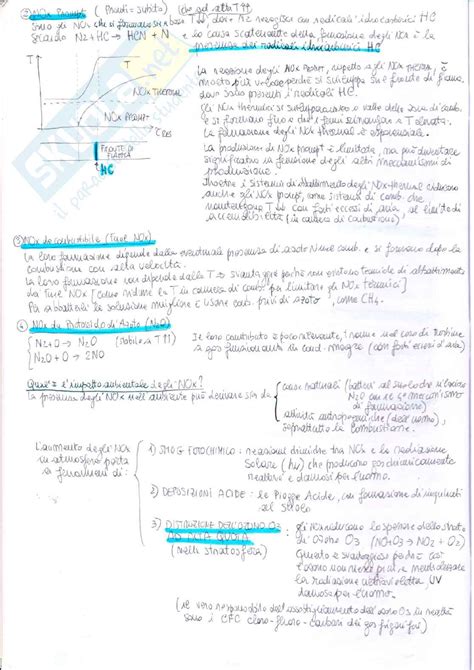 ② NOx Prompt (Prompt = subita) (che ad alta T↑↑)
Sono gli NOx che si formano sia a bassa T↓↓, dove N2 reagisce con radicali idrocarburici HC
secondo N2 + HC → HCN + N e la causa scatenante della formazione degli NOx è la
presenza dei radicali idrocarburici HC
T
NOx THERMAL
NOx PROMPT
τRES
FRONTE DI
FIAMMA
HC
La reazione degli NOx PROMPT, rispetto agli NOx THERMAL, è
molto più veloce perché si sviluppa sul fronte di fiamma,
dove sono presenti i radicali HC.
Gli NOx thermal si svilupperanno a valle della zona di comb.
e si formano fino a che i fumi rimangono a T elevata.
La formazione degli NOx thermal è esponenziale.
La produzione di NOx prompt è limitata, ma può diventare
significativa in funzione degli altri meccanismi di
produzione.
Inoltre i sistemi di abbattimento degli NOx thermal riducono
anche gli NOx prompt, come sistemi di comb. che
mantengono T↓↓ con forti eccessi di aria al limite di
accendibilità (in camera di combustione)
③ NOx da combustibile (Fuel NOx)
La loro formazione dipende dalla eventuale presenza di azoto N nel comb. e si formano dopo la
combustione con alta velocità.
La loro formazione non dipende dalla T → svantaggio perché non esistono tecniche di abbattimento
da fuel NOx [come ridurre la T in camera di comb. per limitare gli NOx termici]
Per abbatterli la soluzione migliore è usare comb. privi di azoto, come CH4.
④ NOx da Protossido di Azoto (N2O)
N2 + O → N2O (stabile a T↑↑)
N2O + O → 2NO
Il loro contributo è poco rilevante, tranne nel caso di turbine
a gas funzionanti in cond. magre (con forti eccessi d'aria)
Qual è l'impatto ambientale degli NOx?
La presenza degli NOx nell'ambiente può derivare sia da
cause naturali (batteri al suolo che rilasciano
N2O per il 4° meccanismo
di formazione)
attività antropogeniche (dell'uomo),
soprattutto la combustione.
L'aumento degli NOx
in atmosfera porta
a fenomeni di:
1) SMOG FOTOCHIMICO: reazioni chimiche tra NOx e la radiazione
solare (hν) che producono
e dannosi per l'uomo.
2) DEPOSIZIONI ACIDE: le Piogge Acide, con formazione di inquinanti
al suolo
3) DISTRUZIONE DELL'OZONO O3
AD ALTA QUOTA
(nella stratosfera)
Gli NOx riducono lo spessore dello strato
di ozono O3 (NO + O3 → NO2 + O2)
Questo è svantaggioso perché così
l'ozono non riesce più a neutralizzare
la radiazione ultravioletta, UV
dannosa per l'uomo.
(Il vero responsabile dell'assottigliamento dell'ozono O3 in realtà
sono i CFC cloro-fluoro-carburi dei gas frigoriferi)